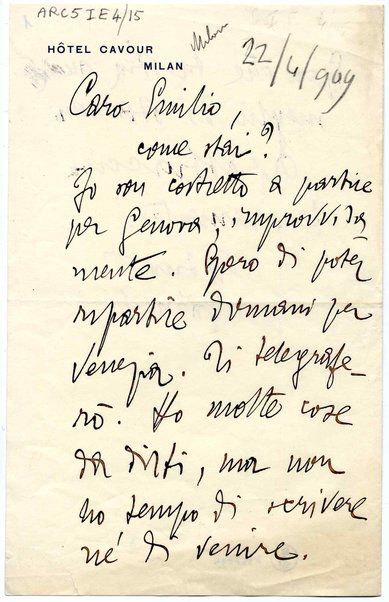 ARC5 IE4/15
HÔTEL CAVOUR
MILAN
Milano
22/4/909
Caro Emilio,
come stai?
Io son costretto a partire
per Genova, improvvisa
mente. Spero di poter
ripartire domani per
Venezia. Ti telegrafe-
rò. Ho molte cose
da dirti, ma non
ho tempo di scrivere
né di venire.